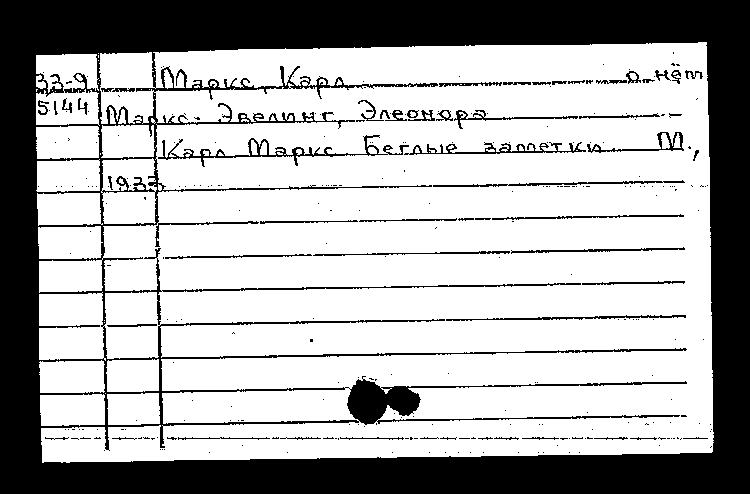 33-9 Маркс, Карл о нём
5144 Маркс-Эвелинг, Элеонора
Карл Маркс. Беглые заметки. М.,
1933.